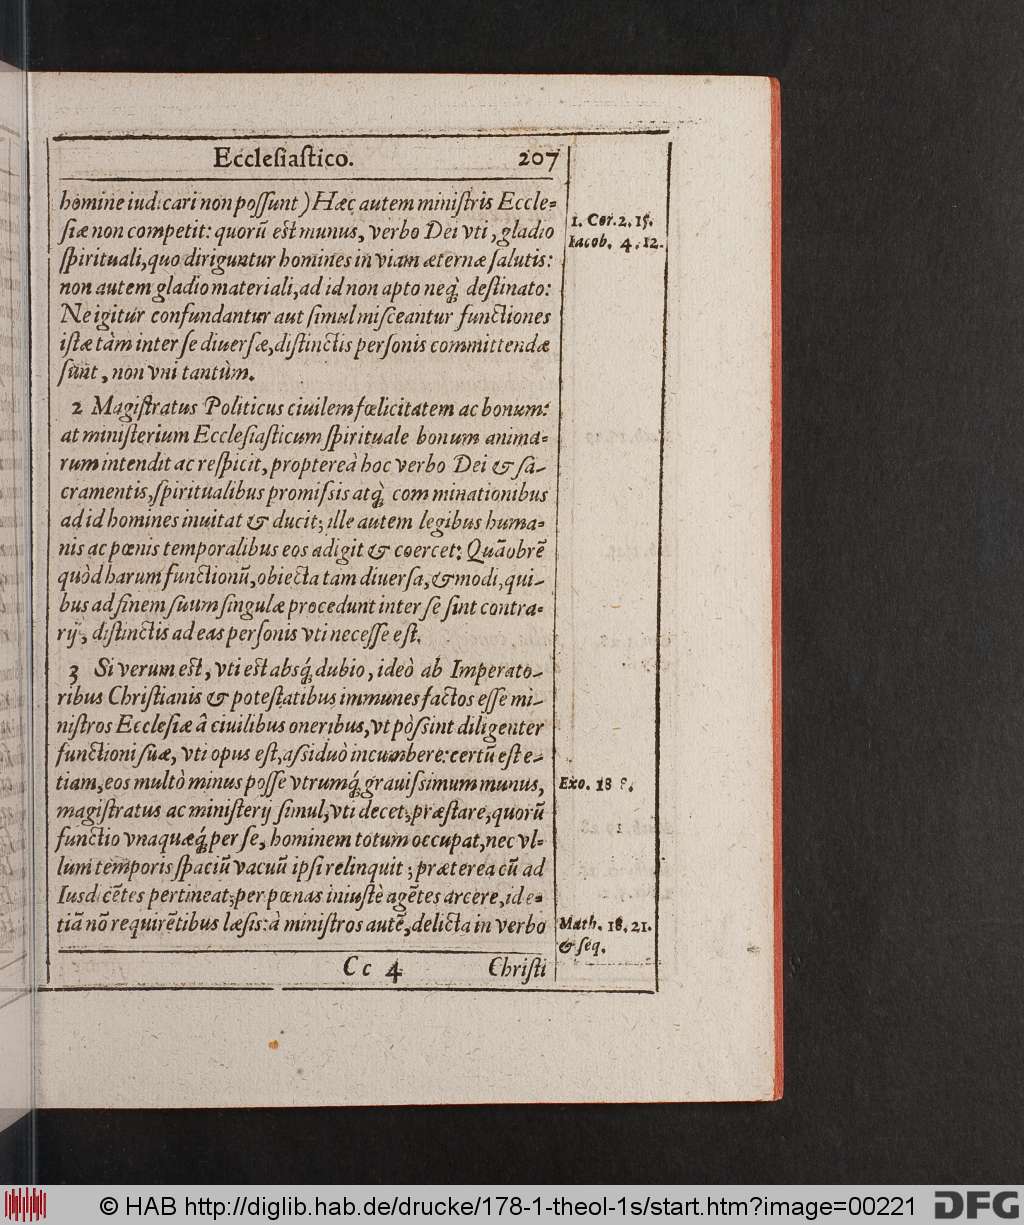 Eccleſiaſtico. 207
homine iudicari non poſſunt) Hæc autem miniſtris Eccle=
ſiæ non competit: quorũ eſt munus, verbo Dei vti, gladio
1. Cor. 2. 15.
Iacob. 4. 12.
ſpirituali, quo diriguntur homines in viam æternæ ſalutis:
non autem gladio materiali, ad id non apto neq́; deſtinato:
Ne igitur confundantur aut ſimul miſceantur functiones
iſtæ tàm inter ſe diuerſæ, diſtinctis perſonis committendæ
ſunt, non vni tantùm.
2 Magiſtratus Politicus ciuilem fœlicitatem ac bonum:
at miniſterium Eccleſiaſticum ſpirituale bonum anima=
rum intendit ac reſpicit, proptereà hoc verbo Dei & ſa-
cramentis, ſpiritualibus promiſsis atq́; comminationibus
ad id homines inuitat & ducit; ille autem legibus huma=
nis ac pœnis temporalibus eos adigit & coercet: Quãobrẽ
quòd harum functionũ, obiecta tam diuerſa, & modi, qui-
bus ad finem ſuum ſingulæ procedunt inter ſe ſint contra=
rij, diſtinctis ad eas perſonis vti neceſſe eſt.
3 Si verum eſt, vti eſt absq́; dubio, ideò ab Imperato-
ribus Chriſtianis & poteſtatibus immunes factos eſſe mi-
niſtros Eccleſiæ â ciuilibus oneribus, vt pòſsint diligenter
functioni ſuæ, vti opus eſt, aſsiduò incumbere: certũ eſt e-
tiam, eos multò minus poſſe vtrumq́; grauiſsimum munus,
Exo. 18 8.
magiſtratus ac miniſterij ſimul, vti decet, præſtare, quorũ
functio vnaquæq́; per ſe, hominem totum occupat, nec vl=
lum temporis ſpaciũ vacuũ ipſi relinquit; præterea cũ ad
Iusdicẽtes pertineat, per pœnas iniuſtè agẽtes arcere, id e=
tiã nõ requirẽtibus læſis: à miniſtros autẽ, delicta in verbo
Math. 18. 21.
& ſeq.
Cc 4 Chriſti
© HAB http://diglib.hab.de/drucke/178-1-theol-1s/start.htm?image=00221 DFG